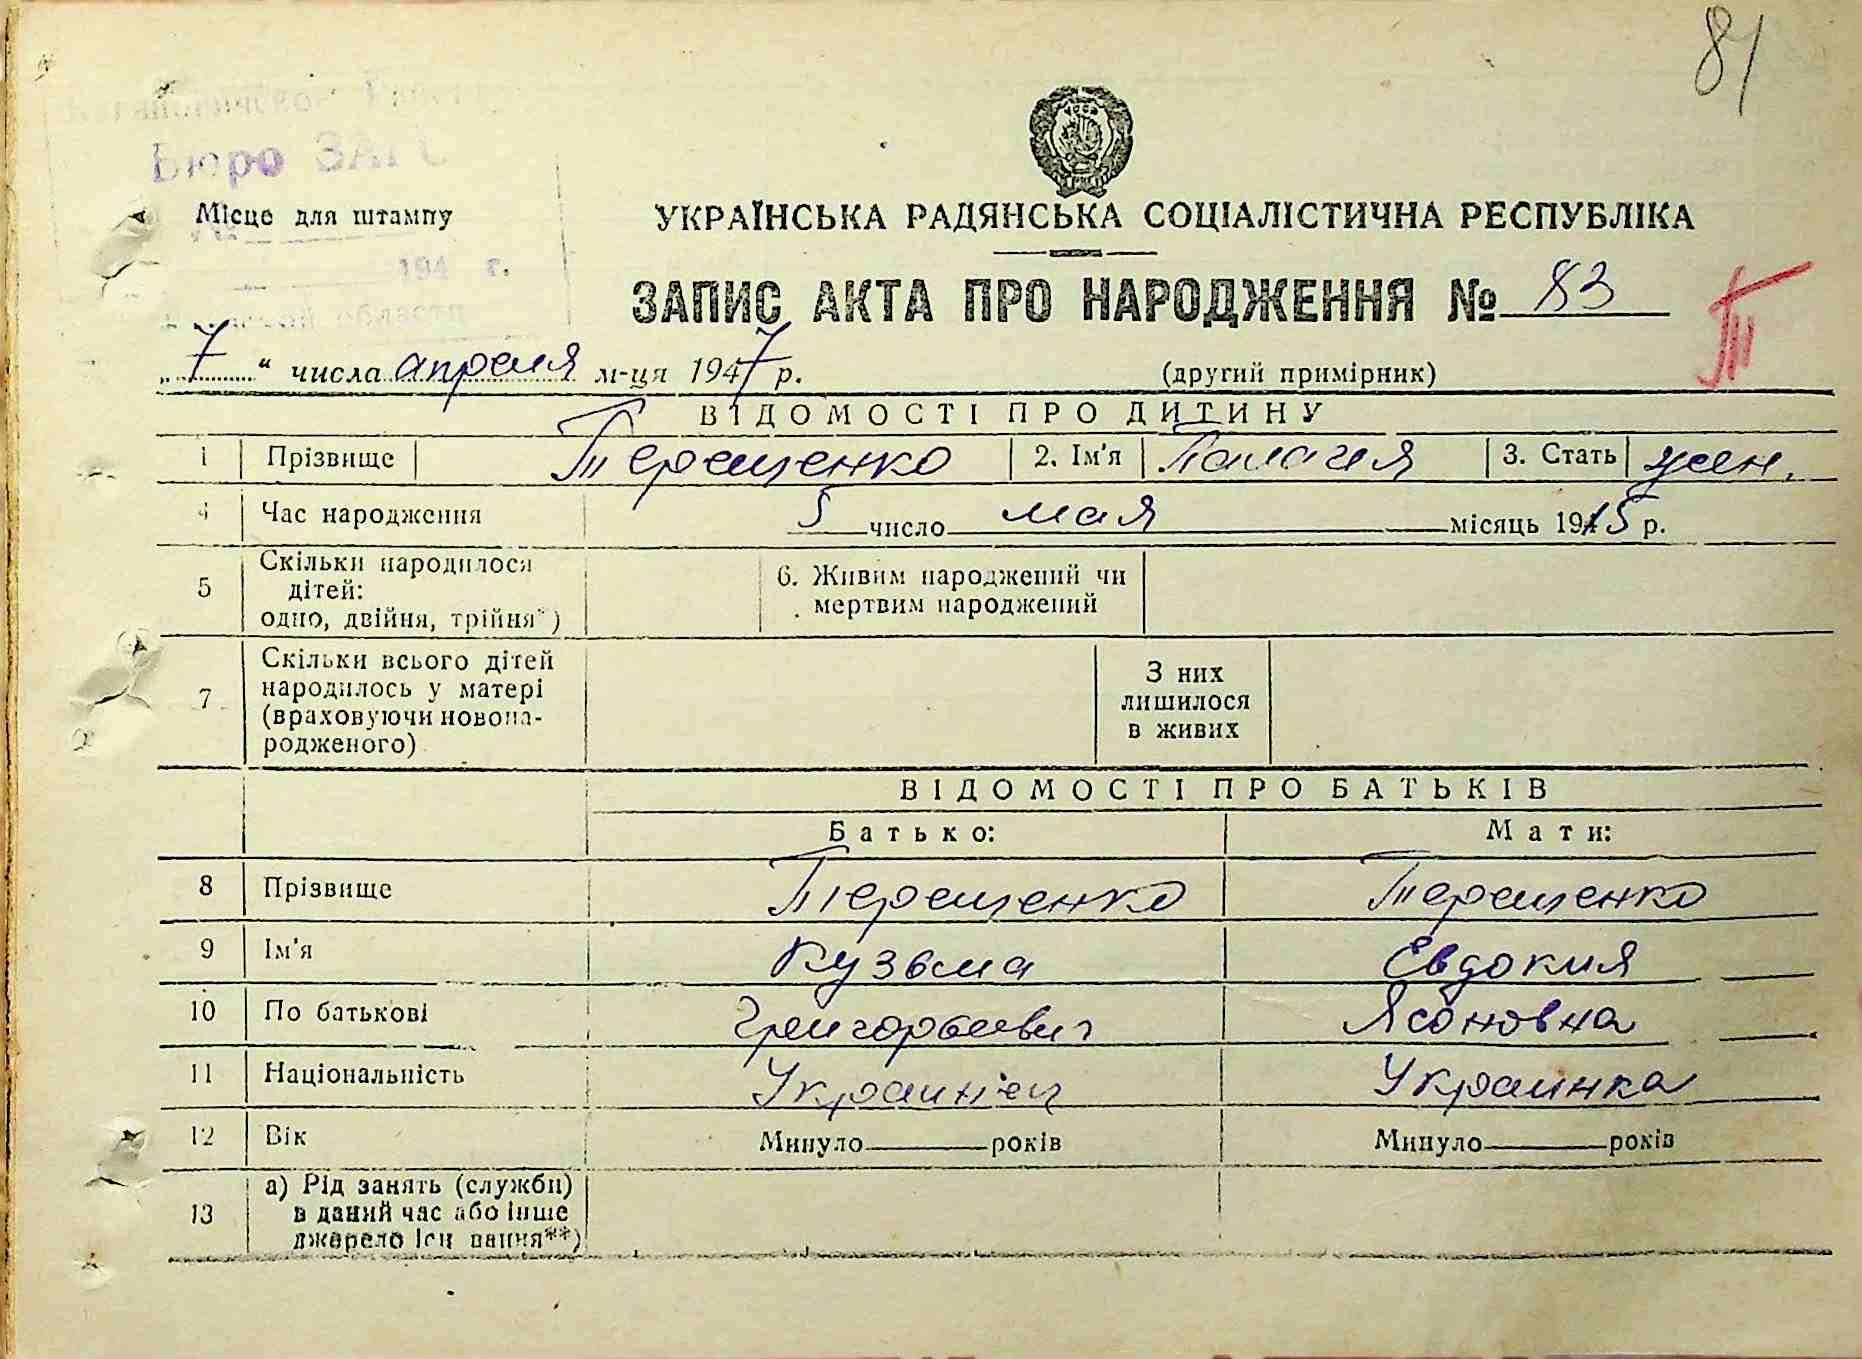 81
Бюро ЗАГС
Місце для штампу
194 г.
области
УКРАЇНСЬКА РАДЯНСЬКА СОЦІАЛІСТИЧНА РЕСПУБЛІКА
ЗАПИС АКТА ПРО НАРОДЖЕННЯ № 83
„7“ числа апреля м-ця 1947 р. (другий примірник)
ВІДОМОСТІ ПРО ДИТИНУ
1 Прізвище Терещенко 2. Ім'я Палагия 3. Стать жен.
4 Час народження 5 число мая місяць 1915 р.
5 Скільки народилося дітей: одно, двійня, трійня*) 6. Живим народжений чи мертвим народжений
7 Скільки всього дітей народилось у матері (враховуючи новона-родженого) З них лишилося в живих
ВІДОМОСТІ ПРО БАТЬКІВ
Батько: Мати:
8 Прізвище Терещенко Терещенко
9 Ім'я Кузьма Евдокия
10 По батькові Григорьевич Ясоновна
11 Національність Украинец Украинка
12 Вік Минуло років Минуло років
13 а) Рід занять (служби) в даний час або інше джерело існування**)